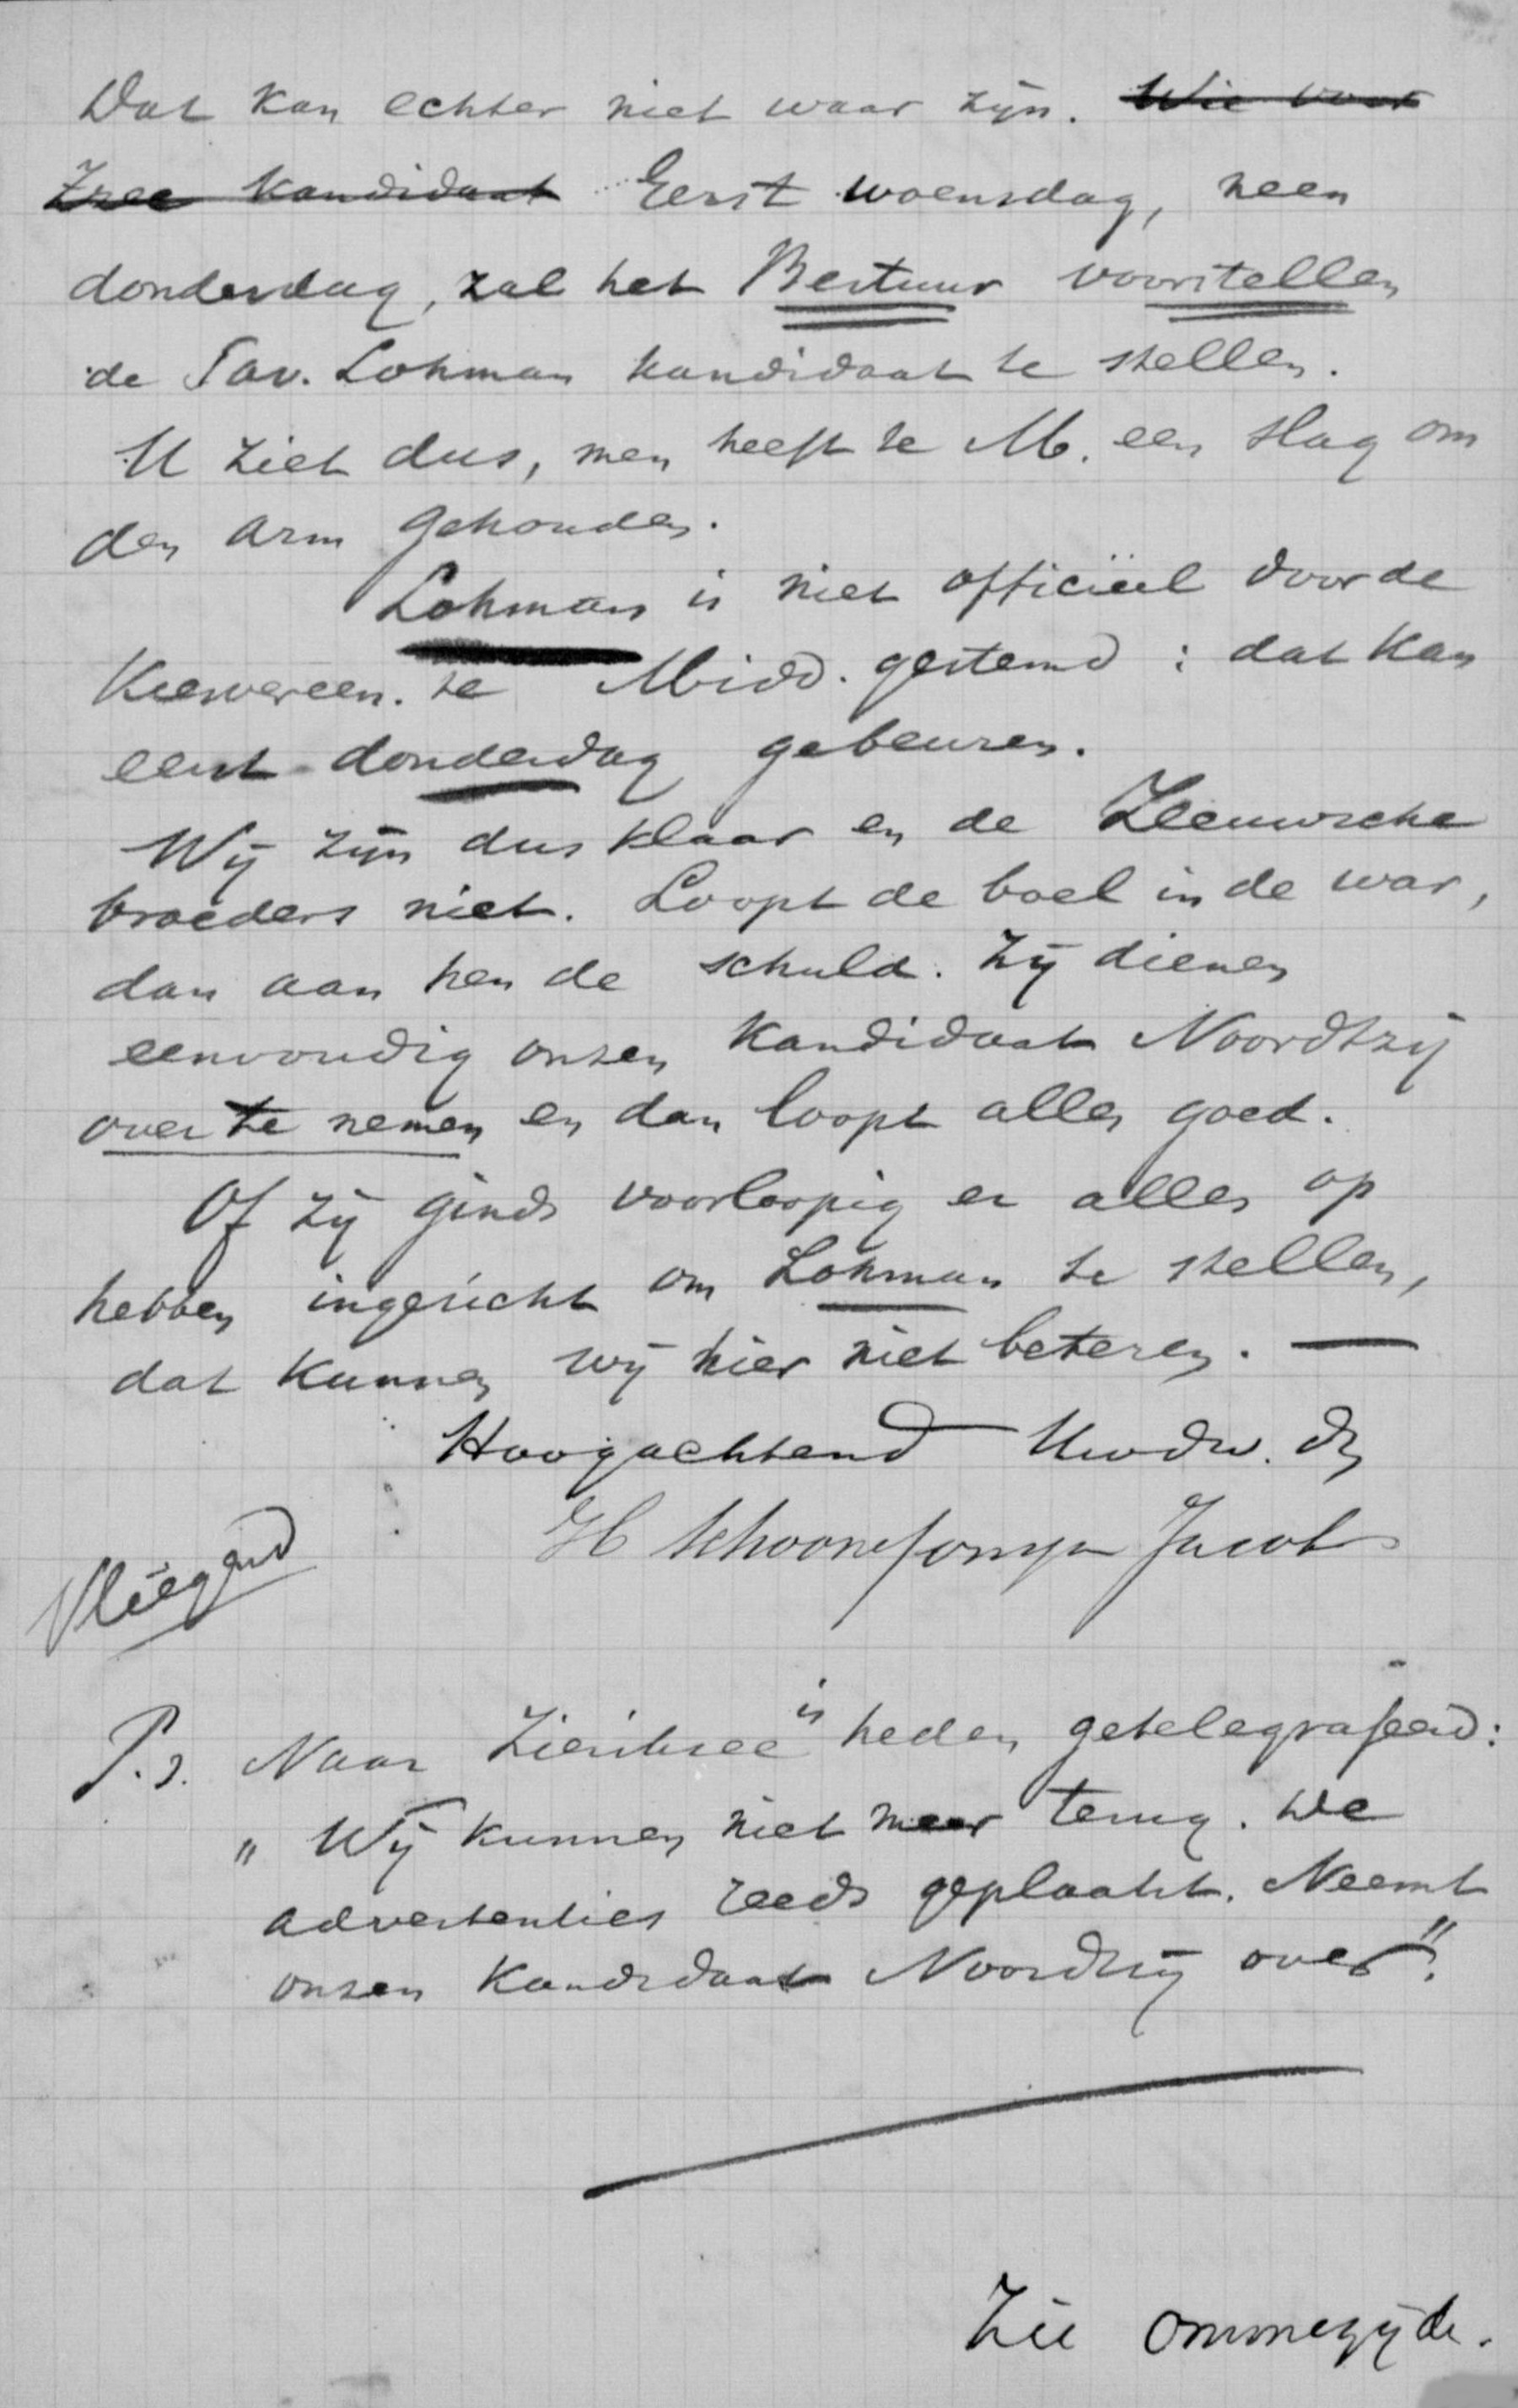 Dat kan echter niet waar zijn. Wie voor
Zzee kandidaat Eerst woensdag, neen
donderdag, zal het Bestuur voorstellen
de Sav. Lohman kandidaat te stellen.
U ziet dus, men heeft te M. een slag om
den arm gehouden.
Lohman is niet officiëel door de
Kiesvereen. te Midd. gestemd : dat kan
eerst donderdag gebeuren.
Wij zijn dus klaar en de Zeeuwsche
broeders niet. Loopt de boel in de war,
dan aan hen de schuld. Zij dienen
eenvoudig onzen kandidaat Noordtzij
over te nemen en dan loopt alles goed.
Of zij ginds voorloopig er alles op
hebben ingericht om Lohman te stellen,
dat kunnen wij hier niet beteren. —
Hoogachtend Uwdw. dr
H Schoone Jacob
Vliegend
P.s. Naar Zierikzee is heden getelegrafeerd:
„ Wij kunnen niet meer terug. We
advertenties reeds geplaatst. Neemt
onzen Kandidaat Noordtzij over".
Zie ommezijde.